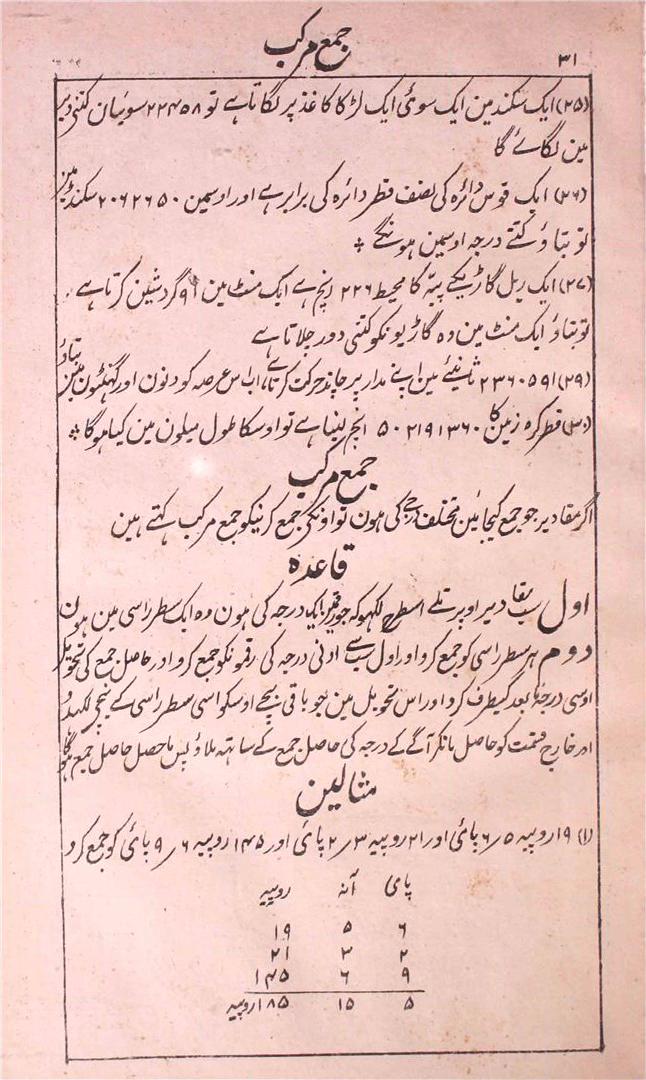 ۳۱
جمع مرکب
(۲۵) ایک سکند مین ایک سوئی ایک لڑکا کاغذ پر لگاتا ہے تو ۲۲۴۵۸ سوئیان کتنی دیر
مین لگائے گا
(۲۶) ایک قوس دائرہ کی نصف قطر دائرہ کی برابر ہے اور اوسمین ۲۰۶۲۶۵۰ سکند ہین
تو بتاؤ کتنے درجہ اوسمین ہونگے ٭
(۲۷) ایک ریل گاڑیکے پیّہ کا محیط ۲۲۶ انچ ہے ایک منٹ مین ۹۱ گردشین کرتا ہے
تو بتاؤ ایک منٹ مین وہ گاڑیونکو کتنی دور چلاتا ہے
(۲۹) ۲۳۶۰۵۹۱ ثانیئے مین اپنے مدار پر چاند حرکت کرتا ہے اب اس عرصہ کو دنون اور گھنٹون مین بتاؤ
(۳۰) قطر کرہ زمین کا ۵۰۲۱۹۱۳۶۰ انچ لنبا ہے تو اوسکا طول میلون مین کیا ہوگا ٭
جمع مرکب
اگر مقادیر جو جمع کیجائین مختلف درجے کی ہون تو اونکی جمع کرنیکو جمع مرکب کہتے ہین
قاعدہ
اول سب مقادیر اوپر تلے اسطرح لکھو کہ جو رقمین ایک درجہ کی ہون وہ ایک سطر راسی مین ہون
دوم ہر سطر راسی کو جمع کرو اور اول سب سے ادنی درجہ کی رقمونکو جمع کرو اور حاصل جمع کی تحویل
اوسی درجہ مابعد کیطرف کرو اور اس تحویل مین جو باقی بچے اوسکو اسی سطر راسی کے نیچے لکھدو
اور خارج قسمت کو حاصل مانکر آگے کے درجہ کی حاصل جمع کے ساتھ ملاؤ پس ماحصل حاصل جمع ہوگا
مثالین
(۱) ۱۹ روپیہ ۵ر ۶ پائی اور ۲۱ روپیہ ۳ر ۲ پائی اور ۱۴۵ روپیہ ۶ر ۹ پائی کو جمع کرو
پای آنہ روپیہ
۶ ۵ ۱۹
۲ ۳ ۲۱
۹ ۶ ۱۴۵
۵ ۱۵ ۱۸۵ روپیہ